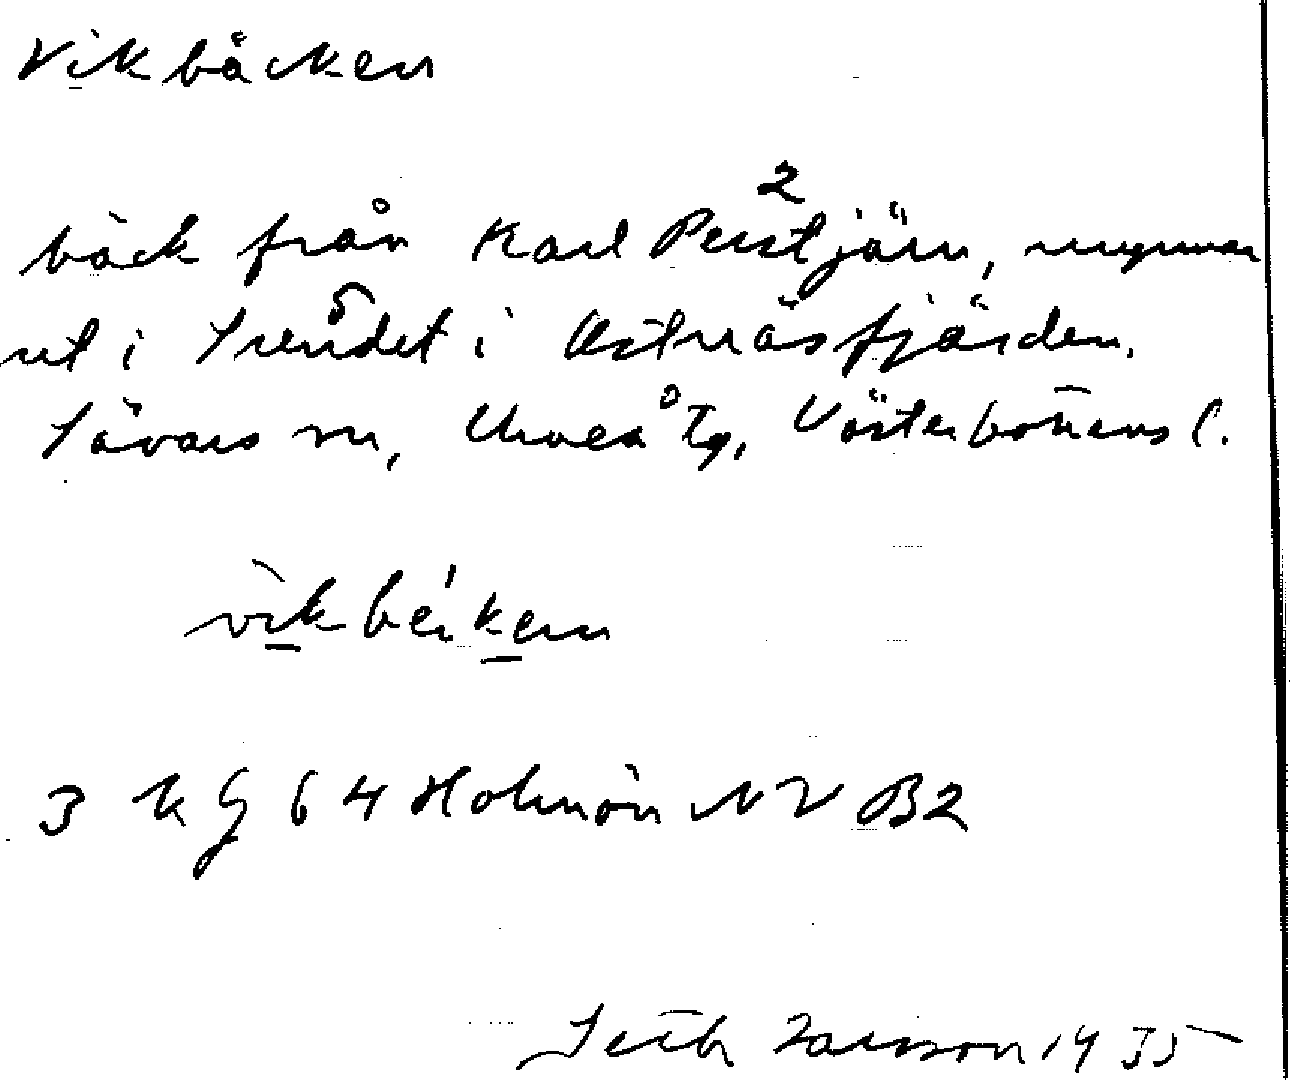 Vikbäcken
2
bäck från Karl Perstjärn, mynnar
ut i Sundet i Ostnäsfjärden.
Sävars sn, Umeå Tg, Västerbottens l.
vikbéiken
3 k G 64 Holmön NV B2
Seth Larsson 1935